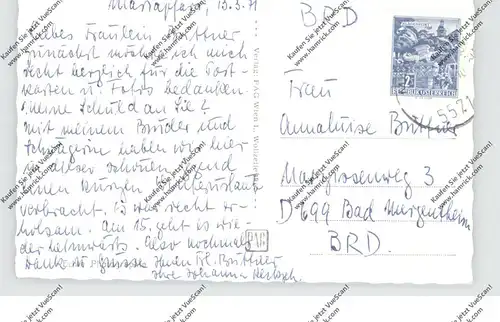 Mariapfarr, 13.3.71
Liebes Fräulein Büttner
zunächst möchte ich mich
recht herzlich für die Post-
karten u. Fotos bedanken.
meine Schuld an Sie?
Mit meinem Bruder und
Schwägerin haben wir hier
in dieser schönen Gegend
einen kurzen
verbracht. Es war recht er-
holsam. Am 15. geht es wie-
der heimwärts. Also nochmals
Danke u. Grüsse Ihnen Frl. Büttner
Ihre Johanna
Verlag P.A.G Wien I.,
PAG
BRD
2S
REPUBLIK ÖSTERREICH
5571
Frau
Annaluise Büttner
Marktosenweg 3
D 699 Bad Mergentheim
BRD.
Kaufen Sie jetzt VueScan!
www.hamrick.com